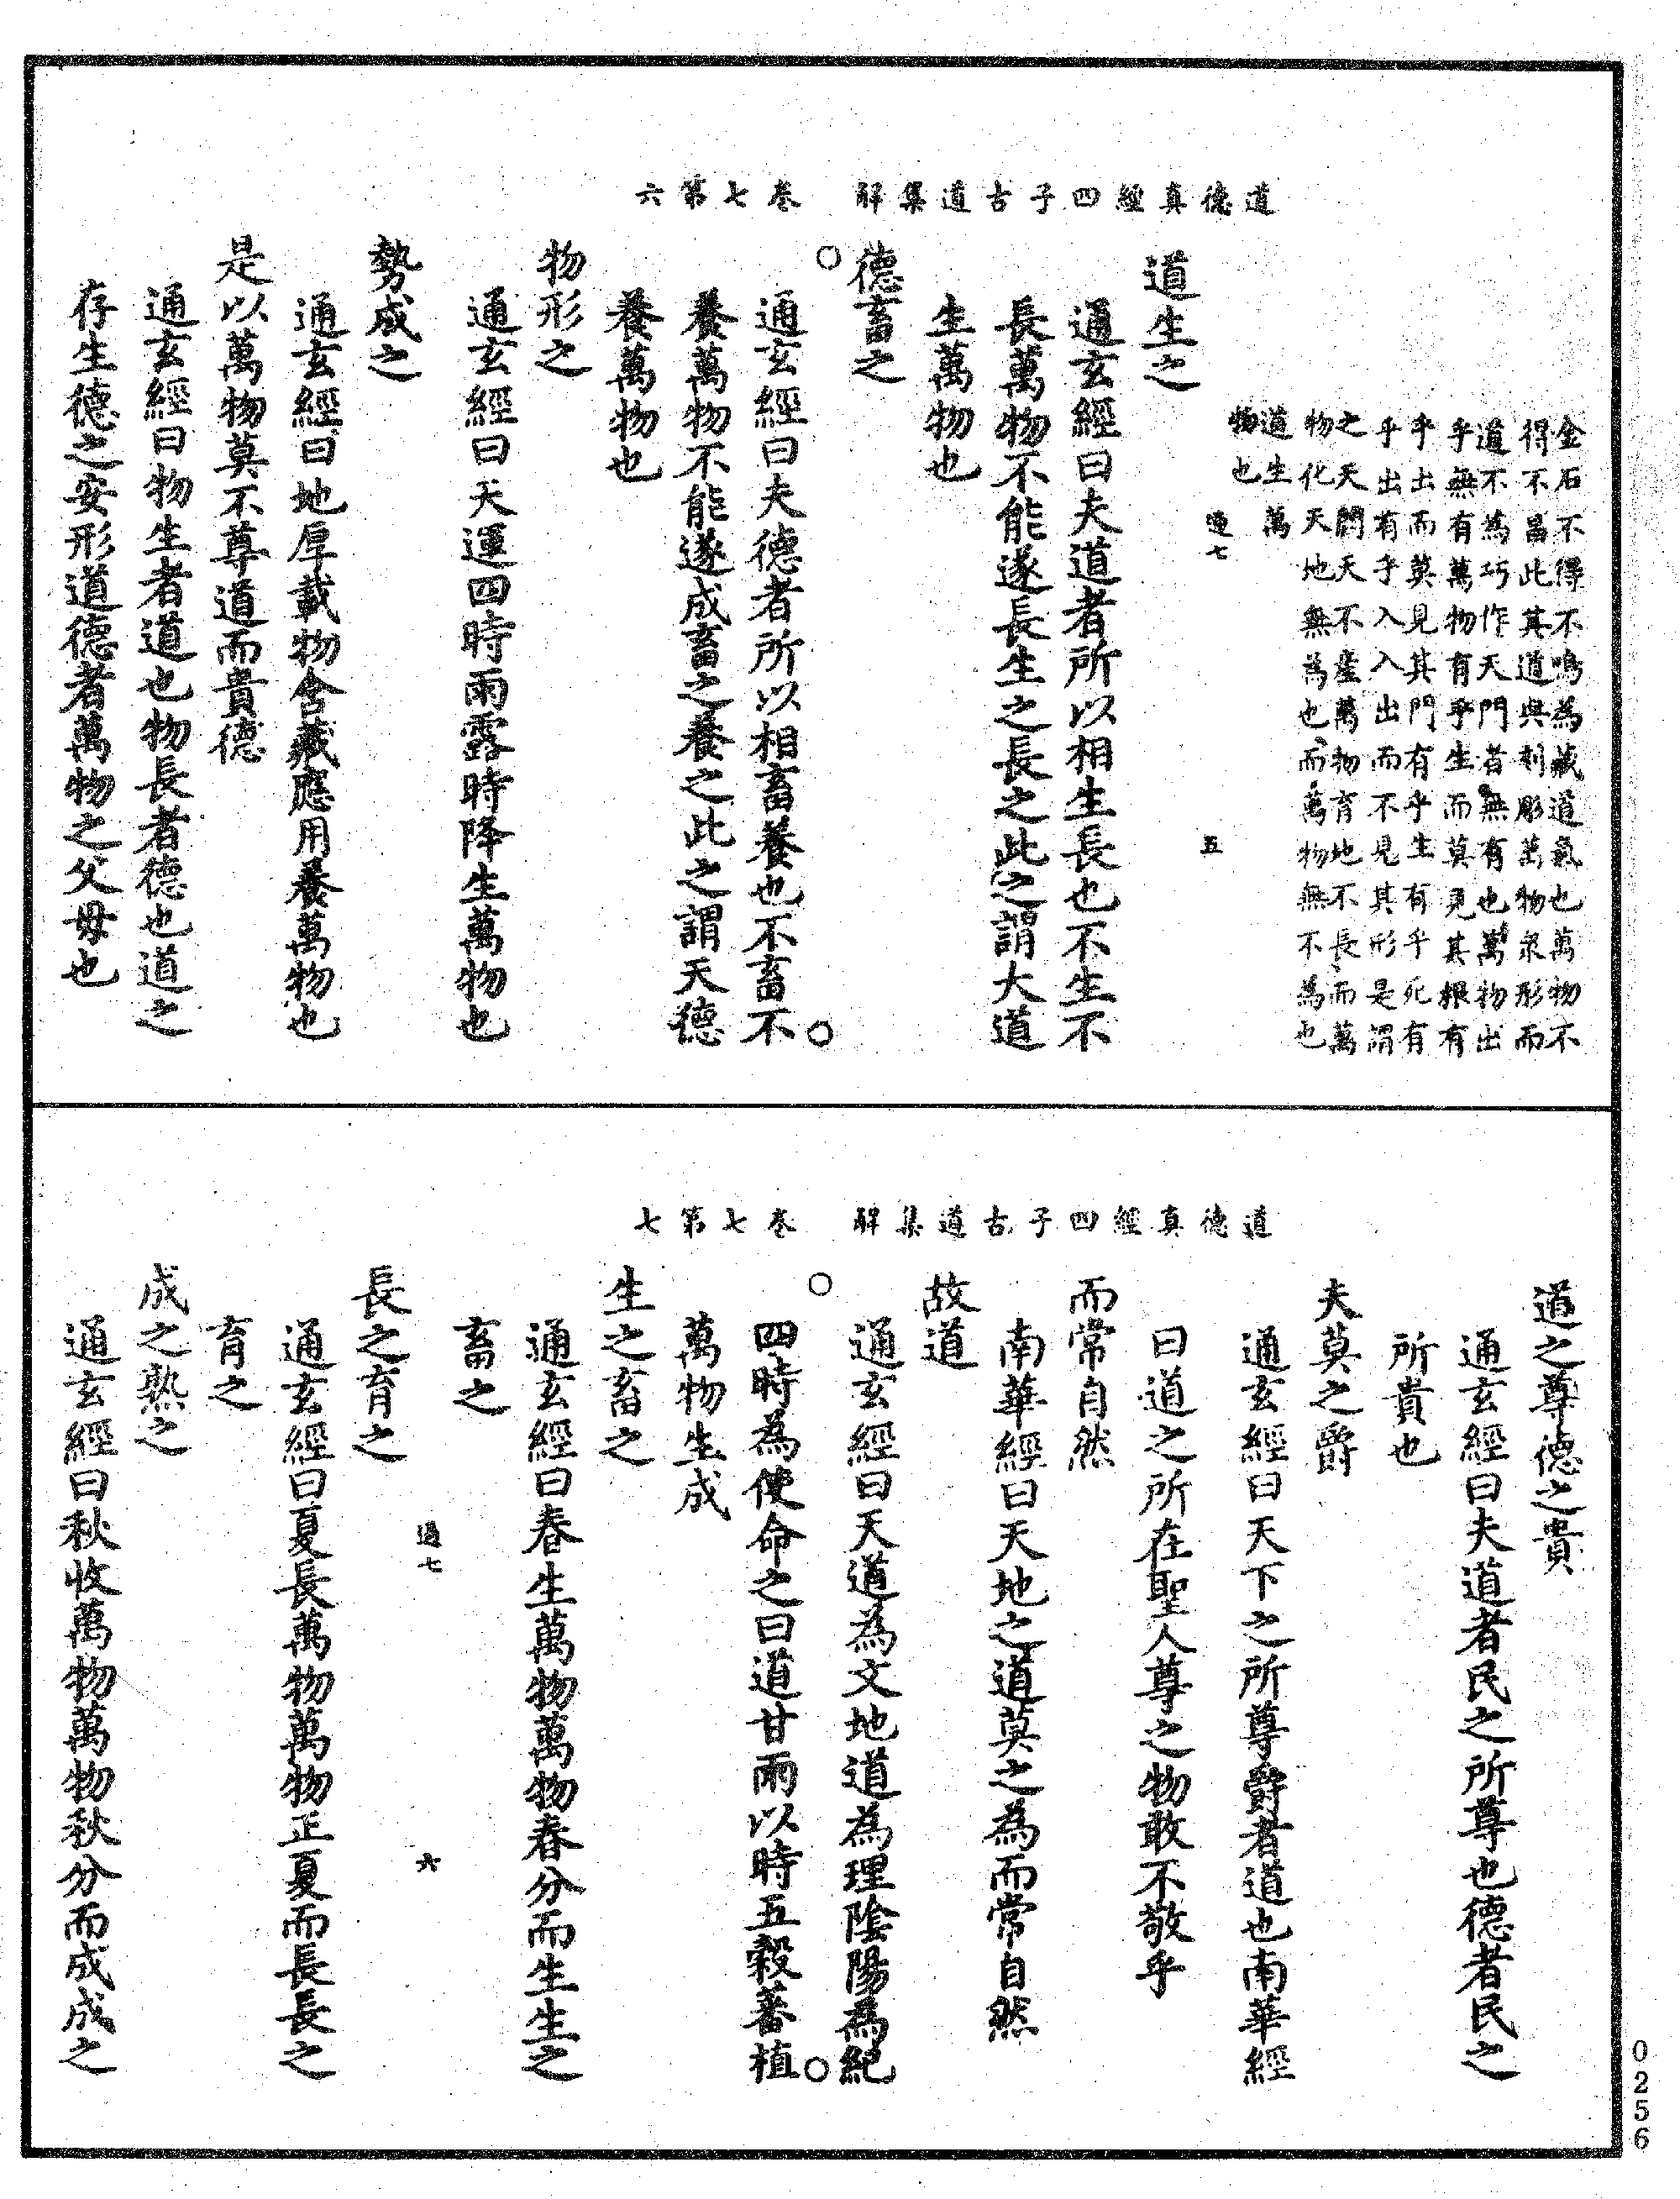 道德真經四子古道集解　卷七第六
金石不得不鳴為藏道氣也萬物不
得不昌此其道與刻彫萬物衆形而
道不為巧作天門者無有也萬物出
乎無有萬物有乎生而莫見其根有
乎出而莫見其門有乎生有乎死有
乎出有乎入入出而不見其形是謂
之天門天不産萬物育地不長而萬
物化天地無為也而萬物無不為也
道生萬
物也
過七　五
道生之
通玄經曰夫道者所以相生長也不生不
長萬物不能遂長生之長之此之謂大道
生萬物也
德畜之
通玄經曰夫德者所以相畜養也不畜不
養萬物不能遂成畜之養之此之謂天德
養萬物也
物形之
通玄經曰天運四時雨露時降生萬物也
勢成之
通玄經曰地厚載物含藏應用養萬物也
是以萬物莫不尊道而貴德
通玄經曰物生者道也物長者德也道之
存生德之安形道德者萬物之父母也
道德真經四子古道集解　卷七第七
道之尊德之貴
通玄經曰夫道者民之所尊也德者民之
所貴也
夫莫之爵
通玄經曰天下之所尊爵者道也南華經
曰道之所在聖人尊之物敢不敬乎
而常自然
南華經曰天地之道莫之為而常自然
故道
通玄經曰天道為文地道為理陰陽為紀
四時為使命之曰道甘雨以時五穀蕃植
萬物生成
生之畜之
通玄經曰春生萬物萬物春分而生生之
畜之
過七　六
長之育之
通玄經曰夏長萬物萬物正夏而長長之
育之
成之熟之
通玄經曰秋收萬物萬物秋分而成成之
0256